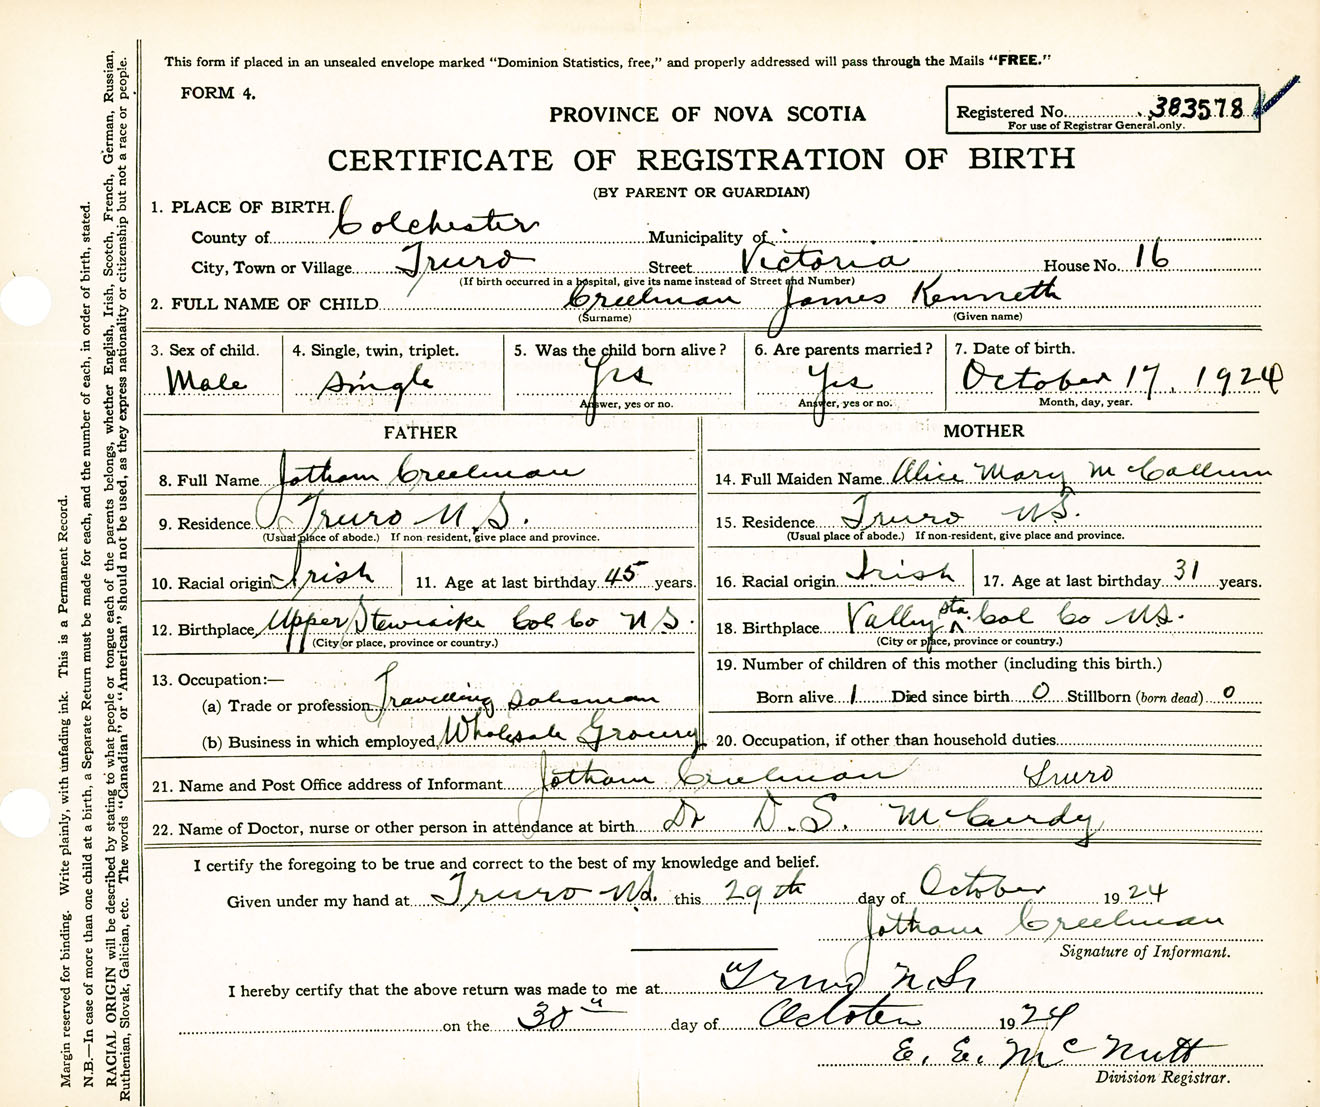 This form if placed in an unsealed envelope marked "Dominion Statistics, free," and properly addressed will pass through the Mails "FREE."
FORM 4.
Registered No. 383578
For use of Registrar General only.
PROVINCE OF NOVA SCOTIA
CERTIFICATE OF REGISTRATION OF BIRTH
(BY PARENT OR GUARDIAN)
1. PLACE OF BIRTH.
County of Colchester Municipality of
City, Town or Village Truro Street Victoria House No. 16
(If birth occurred in a hospital, give its name instead of Street and Number)
2. FULL NAME OF CHILD Creelman James Kenneth
(Surname) (Given name)
3. Sex of child. 4. Single, twin, triplet. 5. Was the child born alive? 6. Are parents married? 7. Date of birth.
Male single Yes Yes October 17, 1924
Answer, yes or no. Answer, yes or no. Month, day, year.
FATHER
8. Full Name Jotham Creelman
9. Residence Truro N.S.
(Usual place of abode.) If non-resident, give place and province.
10. Racial origin Irish 11. Age at last birthday 45 years.
12. Birthplace Upper Stewiacke Col Co N S.
(City or place, province or country.)
13. Occupation:—
(a) Trade or profession Travelling salesman
(b) Business in which employed Wholesale Grocery
MOTHER
14. Full Maiden Name Alice Mary McCallum
15. Residence Truro NS.
(Usual place of abode.) If non-resident, give place and province.
16. Racial origin Irish 17. Age at last birthday 31 years.
18. Birthplace Valley Sta. Col Co NS.
(City or place, province or country.)
19. Number of children of this mother (including this birth.)
Born alive 1 Died since birth 0 Stillborn (born dead) 0
20. Occupation, if other than household duties
21. Name and Post Office address of Informant Jotham Creelman Truro
22. Name of Doctor, nurse or other person in attendance at birth Dr D. S. McCurdy
I certify the foregoing to be true and correct to the best of my knowledge and belief.
Given under my hand at Truro NS. this 29th day of October 1924
Jotham Creelman
Signature of Informant.
I hereby certify that the above return was made to me at Truro N.S.
on the 30th day of October 1924
E. E. McNutt
Division Registrar.
Margin reserved for binding. Write plainly, with unfading ink. This is a Permanent Record.
N.B.—In case of more than one child at a birth, a Separate Return must be made for each, and the number of each, in order of birth, stated.
RACIAL ORIGIN will be described by stating to what people or tongue each of the parents belongs, whether English, Irish, Scotch, French, German, Russian,
Ruthenian, Slovak, Galician, etc. The words "Canadian" or "American" should not be used, as they express nationality or citizenship but not a race or people.